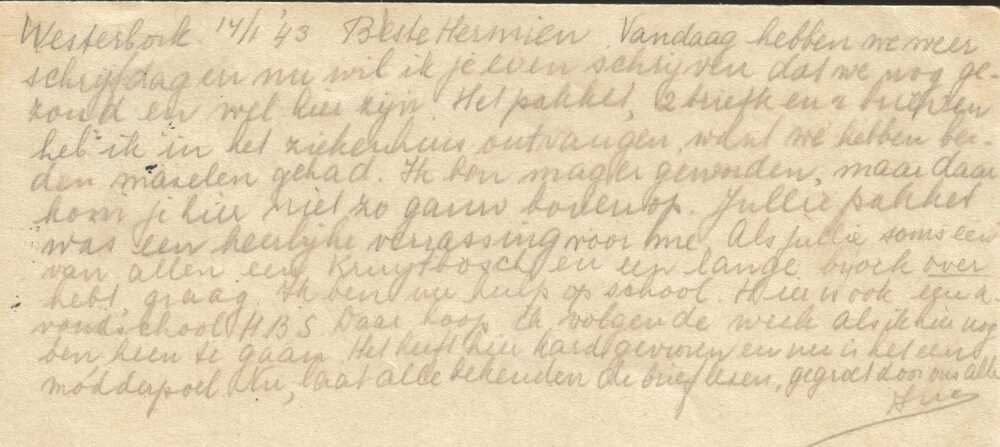 Westerbork 14/1 '43 Beste Hermien. Vandaag hebben we weer
schrijfdag en nu wil ik je even schrijven dat we nog ge-
zond en wel hier zijn. Het pakket, 2 briefk en 2 brieven
heb ik in het ziekenhuis ontvangen, want we hebben bei-
den mazelen gehad. Ik ben mager geworden, maar daar
kom je hier niet zo gauw bovenop. Jullie pakket
was een heerlijke verrassing voor me. Als jullie soms een
van allen een Kruytbosch en een lange broek over
hebt, graag. Ik ben nu hulp op school. Hier is ook een a-
vondschool H.B.S. Daar hoop ik volgende week als ik hier nog
ben heen te gaan. Het heeft hier hard gevroren en nu is het een
modderpoel. Nu, laat alle bekenden de brief lezen, gegroet door ons alle